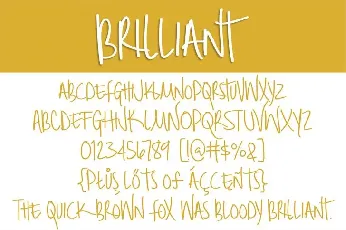 BRILLIANT
ABCDEFGHIJKLMNOPQRSTUVWXYZ
ABCDEFGHIJKLMNOPQRSTUVWXYZ
0123456789 [!@#$%&]
{PŁÜŞ LÓTS OF ÁÇCENTS}
THE QUICK BROWN FOX WAS BLOODY BRILLIANT.